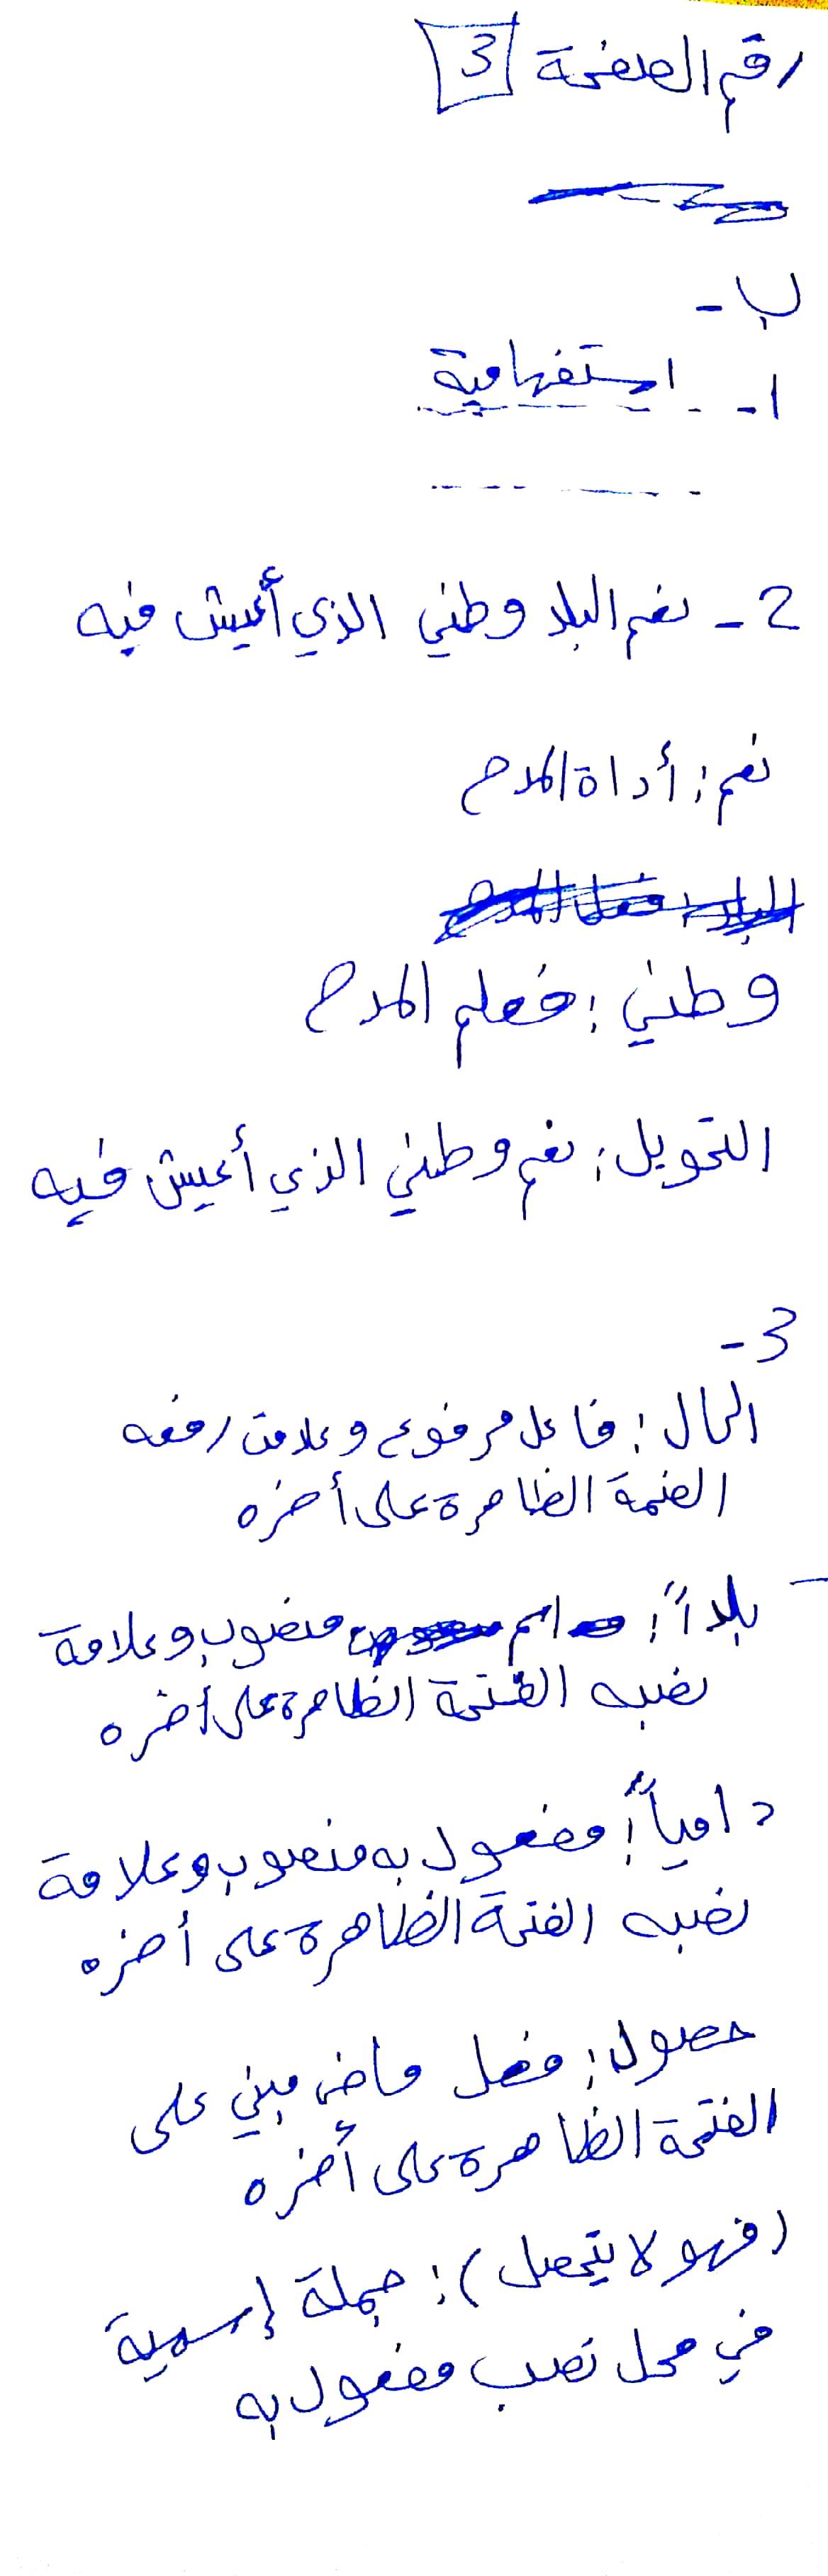 رقم الصفحة 3
ب -
1- استفهامية
2- نعم البلد وطني الذي أعيش فيه
نعم: أداة المدح
وطني: فعلم المدح
التحويل: نعم وطني الذي أعيش فيه
3-
المال: فاعل مرفوع وعلامت رفعه
الضمة الظاهرة على أخره
بلداً: اسم منصوب وعلامة
نصبه الفتحة الظاهرة على أخره
دامياً: مفعول به منصوب وعلامة
نصبه الفتحة الظاهرة على أخره
حصول: فعل ماض مبني على
الفتحة الظاهرة على أخره
(فهو لا يتحصل): جملة إسمية
في محل نصب مفعول به